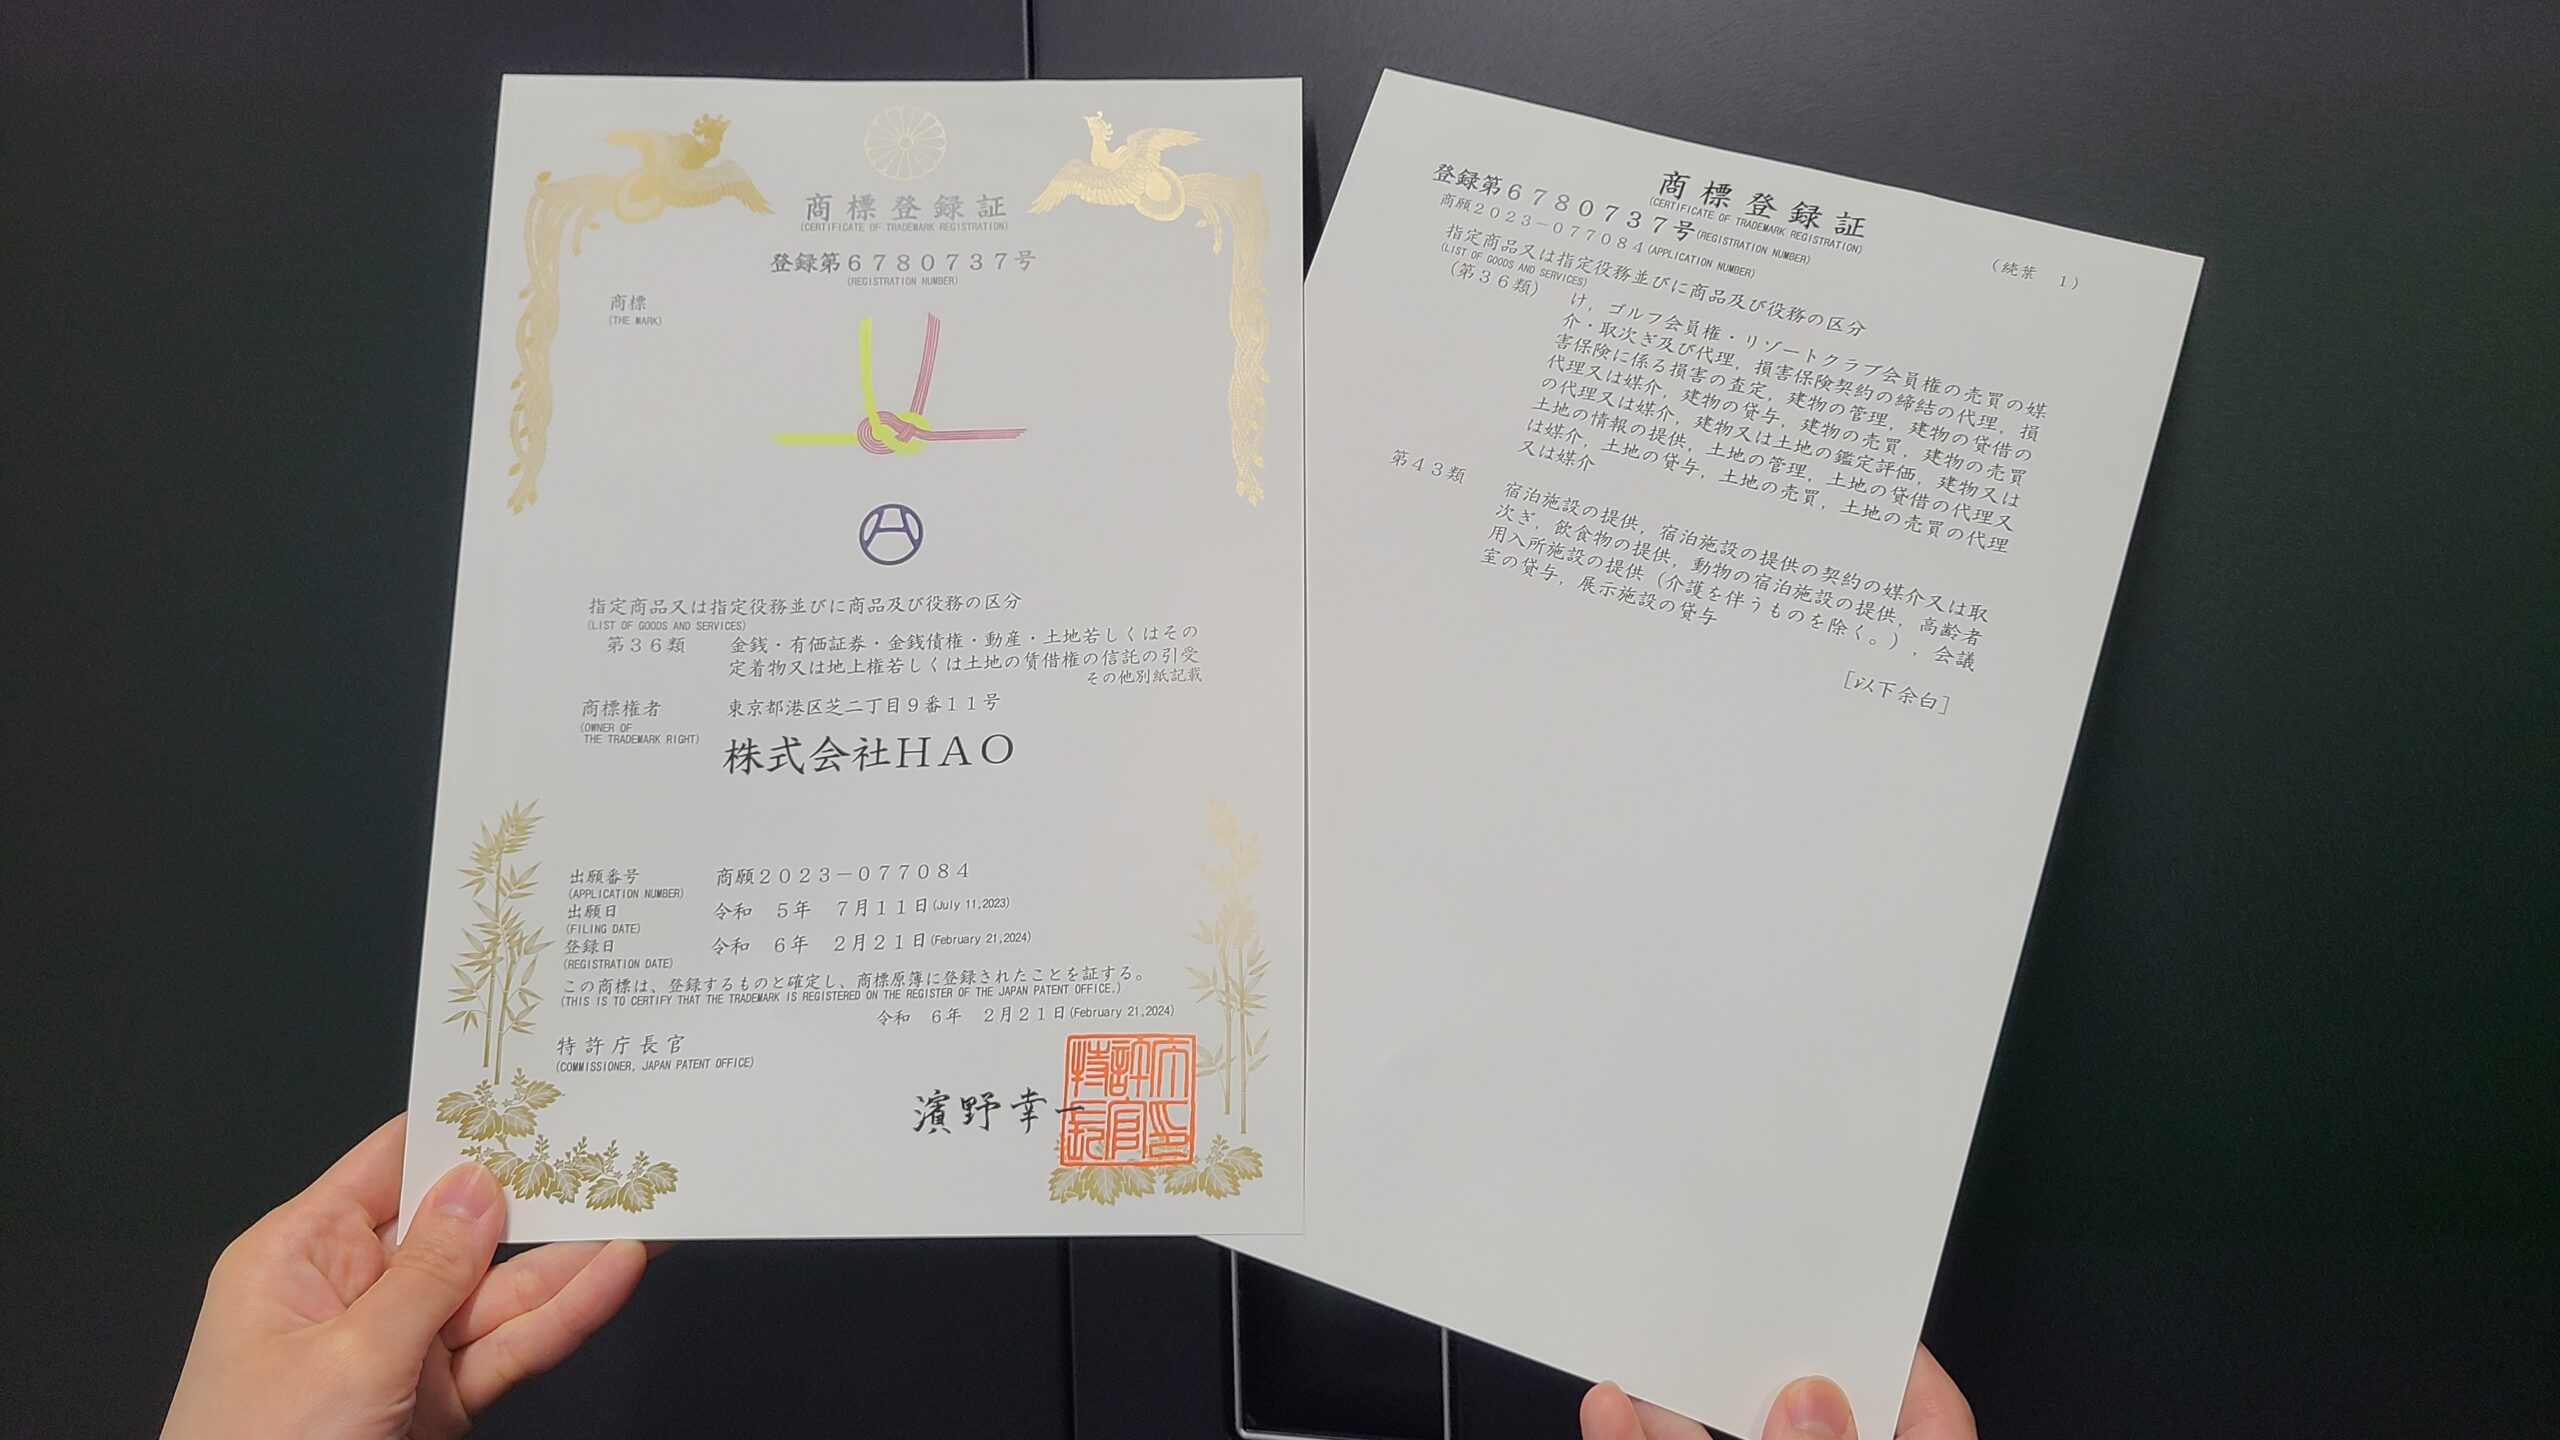 商標登録証
(CERTIFICATE OF TRADEMARK REGISTRATION)
登録第6780737号
(REGISTRATION NUMBER)
商標
(THE MARK)
指定商品又は指定役務並びに商品及び役務の区分
(LIST OF GOODS AND SERVICES)
第36類 金銭・有価証券・金銭債権・動産・土地若しくはその
定着物又は地上権若しくは土地の賃借権の信託の引受
その他別紙記載
商標権者 東京都港区芝二丁目9番11号
(OWNER OF
THE TRADEMARK RIGHT)
株式会社HAO
出願番号 商願2023-077084
(APPLICATION NUMBER)
出願日 令和 5年 7月11日(July 11,2023)
(FILING DATE)
登録日 令和 6年 2月21日(February 21,2024)
(REGISTRATION DATE)
この商標は、登録するものと確定し、商標原簿に登録されたことを証する。
(THIS IS TO CERTIFY THAT THE TRADEMARK IS REGISTERED ON THE REGISTER OF THE JAPAN PATENT OFFICE.)
令和 6年 2月21日(February 21,2024)
特許庁長官
(COMMISSIONER, JAPAN PATENT OFFICE)
濱野幸一
特許庁長官之印
商標登録証
(CERTIFICATE OF TRADEMARK REGISTRATION)
登録第6780737号(REGISTRATION NUMBER)
商願2023-077084(APPLICATION NUMBER)
(続葉 1)
指定商品又は指定役務並びに商品及び役務の区分
(LIST OF GOODS AND SERVICES)
(第36類) け,ゴルフ会員権・リゾートクラブ会員権の売買の媒
介・取次ぎ及び代理,損害保険契約の締結の代理,損
害保険に係る損害の査定,建物の管理,建物の貸借の
代理又は媒介,建物の貸与,建物の売買,建物の売買
の代理又は媒介,建物又は土地の鑑定評価,建物又は
土地の情報の提供,土地の管理,土地の貸借の代理又
は媒介,土地の貸与,土地の売買,土地の売買の代理
又は媒介
第43類 宿泊施設の提供,宿泊施設の提供の契約の媒介又は取
次ぎ,飲食物の提供,動物の宿泊施設の提供,高齢者
用入所施設の提供(介護を伴うものを除く。),会議
室の貸与,展示施設の貸与
[以下余白]